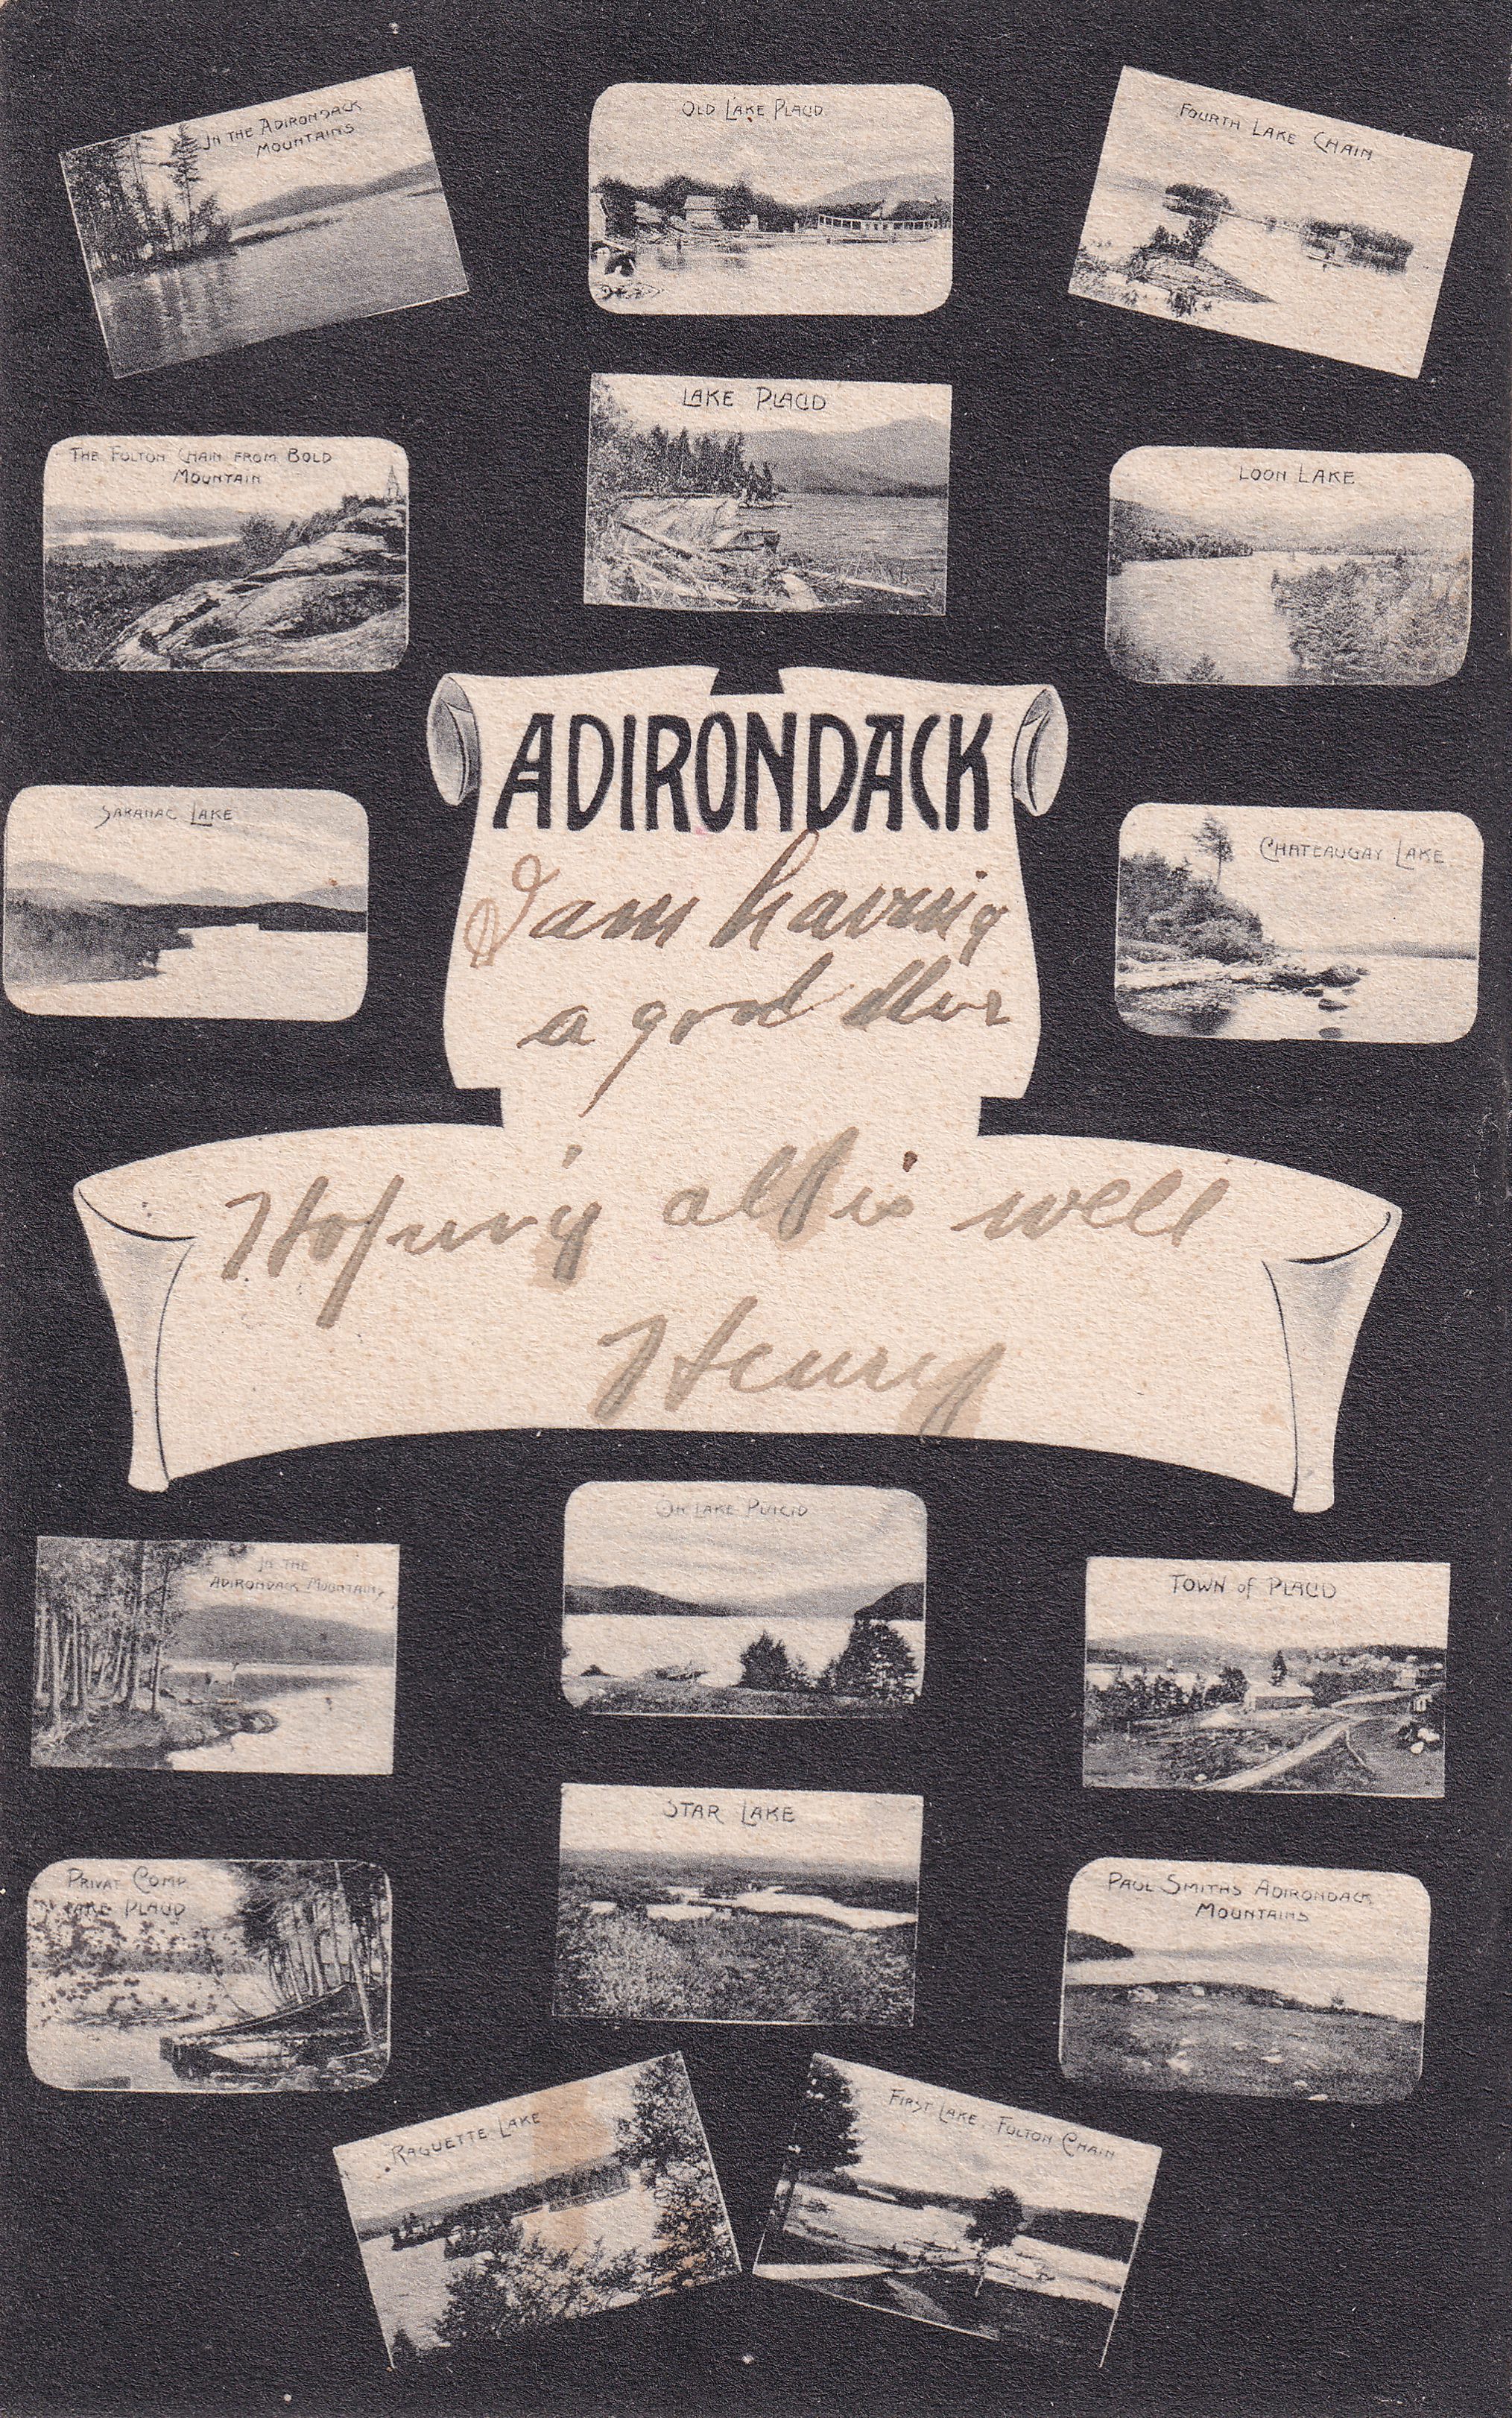 IN THE ADIRONDACK
MOUNTAINS
OLD LAKE PLACID
FOURTH LAKE CHAIN
THE FULTON CHAIN FROM BOLD
MOUNTAIN
LAKE PLACID
LOON LAKE
SARANAC LAKE
CHATEAUGAY LAKE
ADIRONDACK
I am having
a good
Hoping all is well
Henry
IN THE
ADIRONDACK MOUNTAINS
LAKE PLACID
TOWN of PLACID
PRIVAT COMP
LAKE PLACID
STAR LAKE
PAUL SMITHS ADIRONDACK
MOUNTAINS
RAQUETTE LAKE
FIRST LAKE. FULTON CHAIN